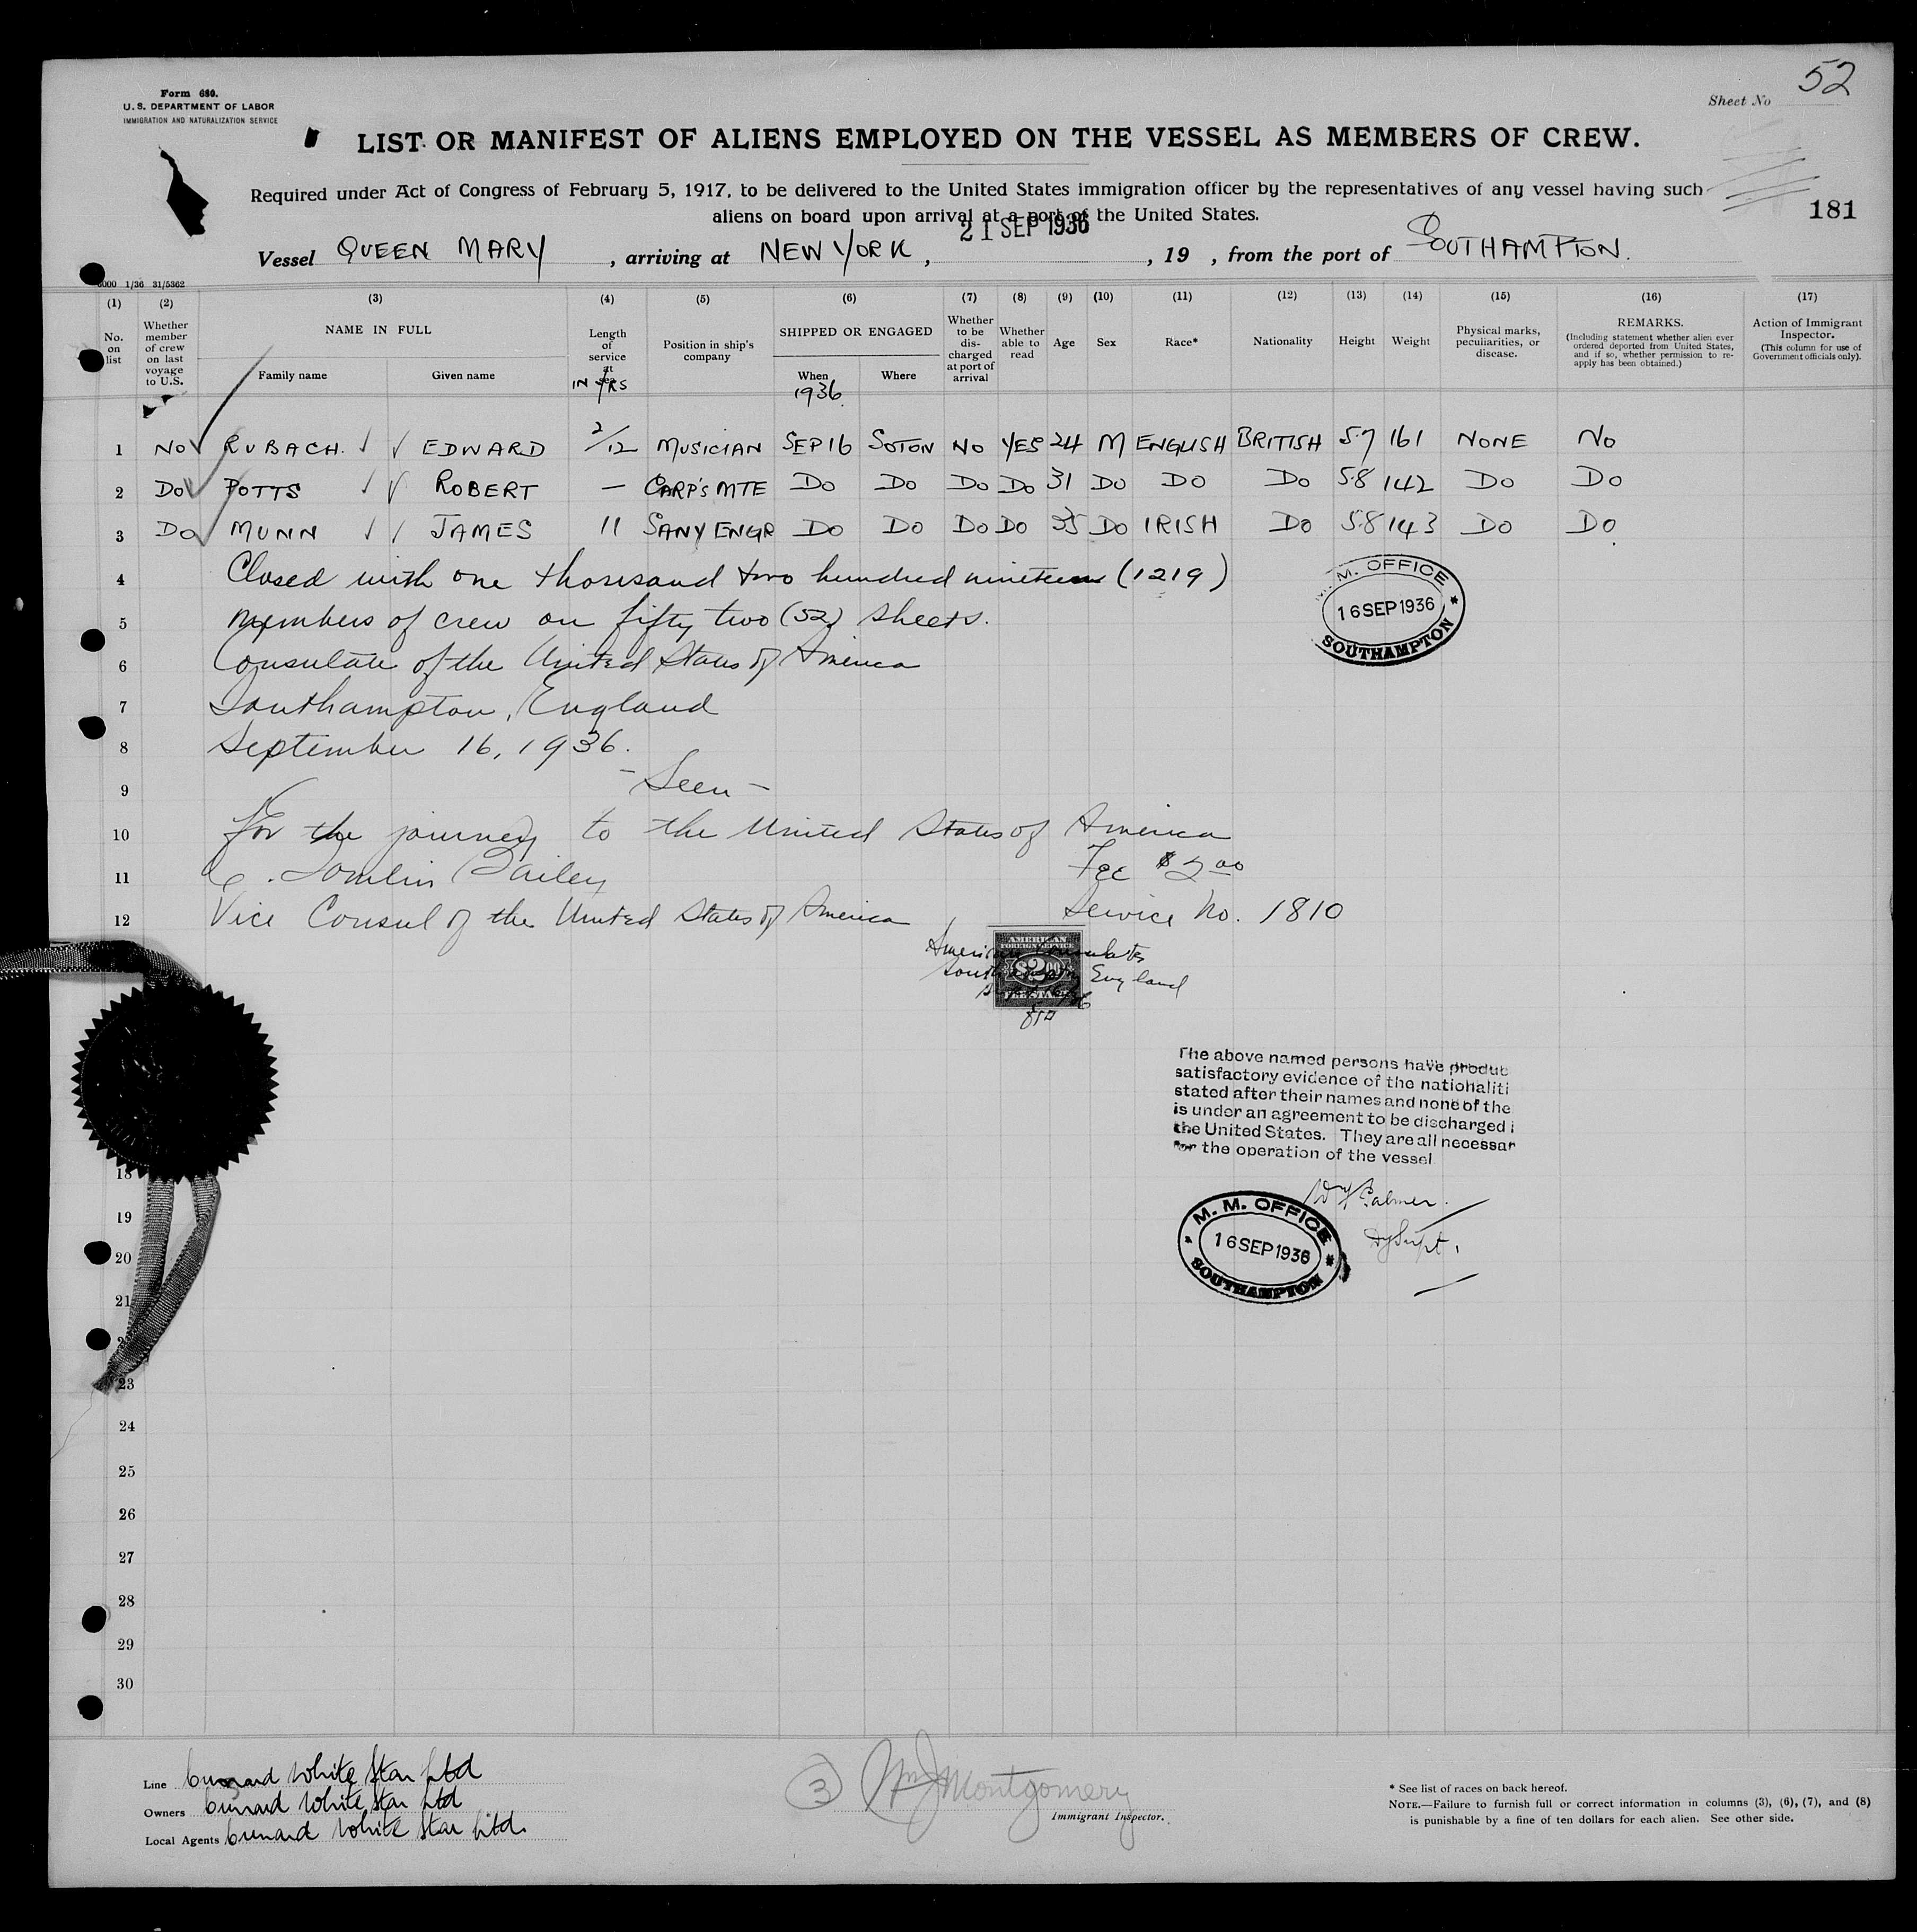 Form 680.
U. S. DEPARTMENT OF LABOR
IMMIGRATION AND NATURALIZATION SERVICE
Sheet No 52
LIST OR MANIFEST OF ALIENS EMPLOYED ON THE VESSEL AS MEMBERS OF CREW.
Required under Act of Congress of February 5, 1917, to be delivered to the United States immigration officer by the representatives of any vessel having such
aliens on board upon arrival at a port of the United States.
181
21 SEP 1936
Vessel QUEEN MARY, arriving at NEW YORK, , 19 , from the port of SOUTHAMPTON.
6000 1/36 31/5362
(1) (2) (3) (4) (5) (6) (7) (8) (9) (10) (11) (12) (13) (14) (15) (16) (17)
No. on list
Whether member of crew on last voyage to U.S.
NAME IN FULL
Family name
Given name
Length of service at sea
IN YRS
Position in ship's company
SHIPPED OR ENGAGED
When
1936.
Where
Whether to be discharged at port of arrival
Whether able to read
Age
Sex
Race*
Nationality
Height
Weight
Physical marks, peculiarities, or disease.
REMARKS.
(Including statement whether alien ever ordered deported from United States, and if so, whether permission to re-apply has been obtained.)
Action of Immigrant Inspector.
(This column for use of Government officials only).
1 NO RUBACH. EDWARD 2/12 MUSICIAN SEP 16 SOTON NO YES 24 M ENGLISH BRITISH 5.7 161 NONE NO
2 DO POTTS ROBERT — CARP'S MTE DO DO DO DO 31 DO DO DO 5.8 142 DO DO
3 DO MUNN JAMES 11 SANY ENGR DO DO DO DO 35 DO IRISH DO 5.8 143 DO DO
4 Closed with one thousand two hundred nineteen (1219)
5 members of crew on fifty two (52) sheets.
6 Consulate of the United States of America
7 Southampton, England
8 September 16, 1936.
9 – Seen –
10 For the journey to the United States of America
11 E. Tomlin Bailey Fee $2.00
12 Vice Consul of the United States of America Service No. 1810
M. OFFICE
16 SEP 1936
SOUTHAMPTON
AMERICAN
FOREIGN SERVICE
$2.00
FEE STAMP
American Consulate
Southampton England
The above named persons have produc
satisfactory evidence of the nationaliti
stated after their names and none of the
is under an agreement to be discharged i
the United States. They are all necessar
for the operation of the vessel
Palmer.
Dy Supt.
M. M. OFFICE
16 SEP 1936
SOUTHAMPTON
18
19
20
21
23
24
25
26
27
28
29
30
Line Cunard White Star Ltd
Owners Cunard White Star Ltd
Local Agents Cunard White Star Ltd.
3 Wm J Montgomery
Immigrant Inspector.
* See list of races on back hereof.
NOTE.—Failure to furnish full or correct information in columns (3), (6), (7), and (8)
is punishable by a fine of ten dollars for each alien. See other side.